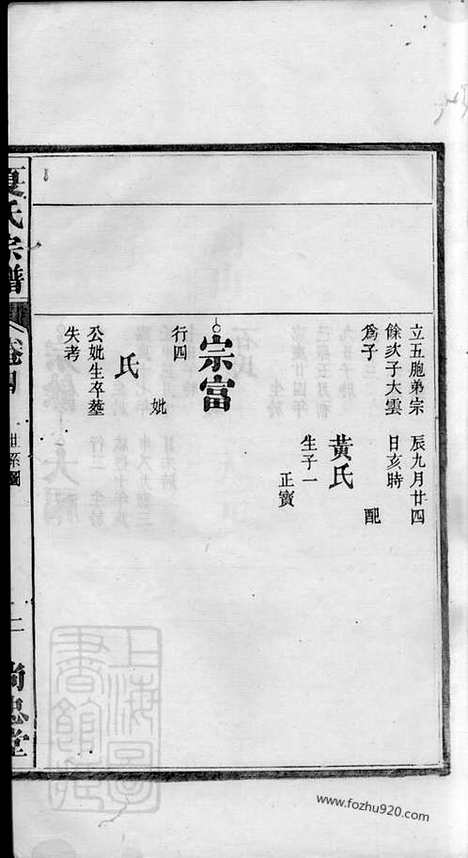 立五胞弟宗
餘次子大雲
爲子
辰九月廿四
日亥時
配
黃氏
生子一
正寶
宗富
行四
妣
氏
公妣生卒塟
失考
夏氏宗譜
卷四
世系圖
二
尚忠堂
上海圖
書館藏
www.fozhu920.com